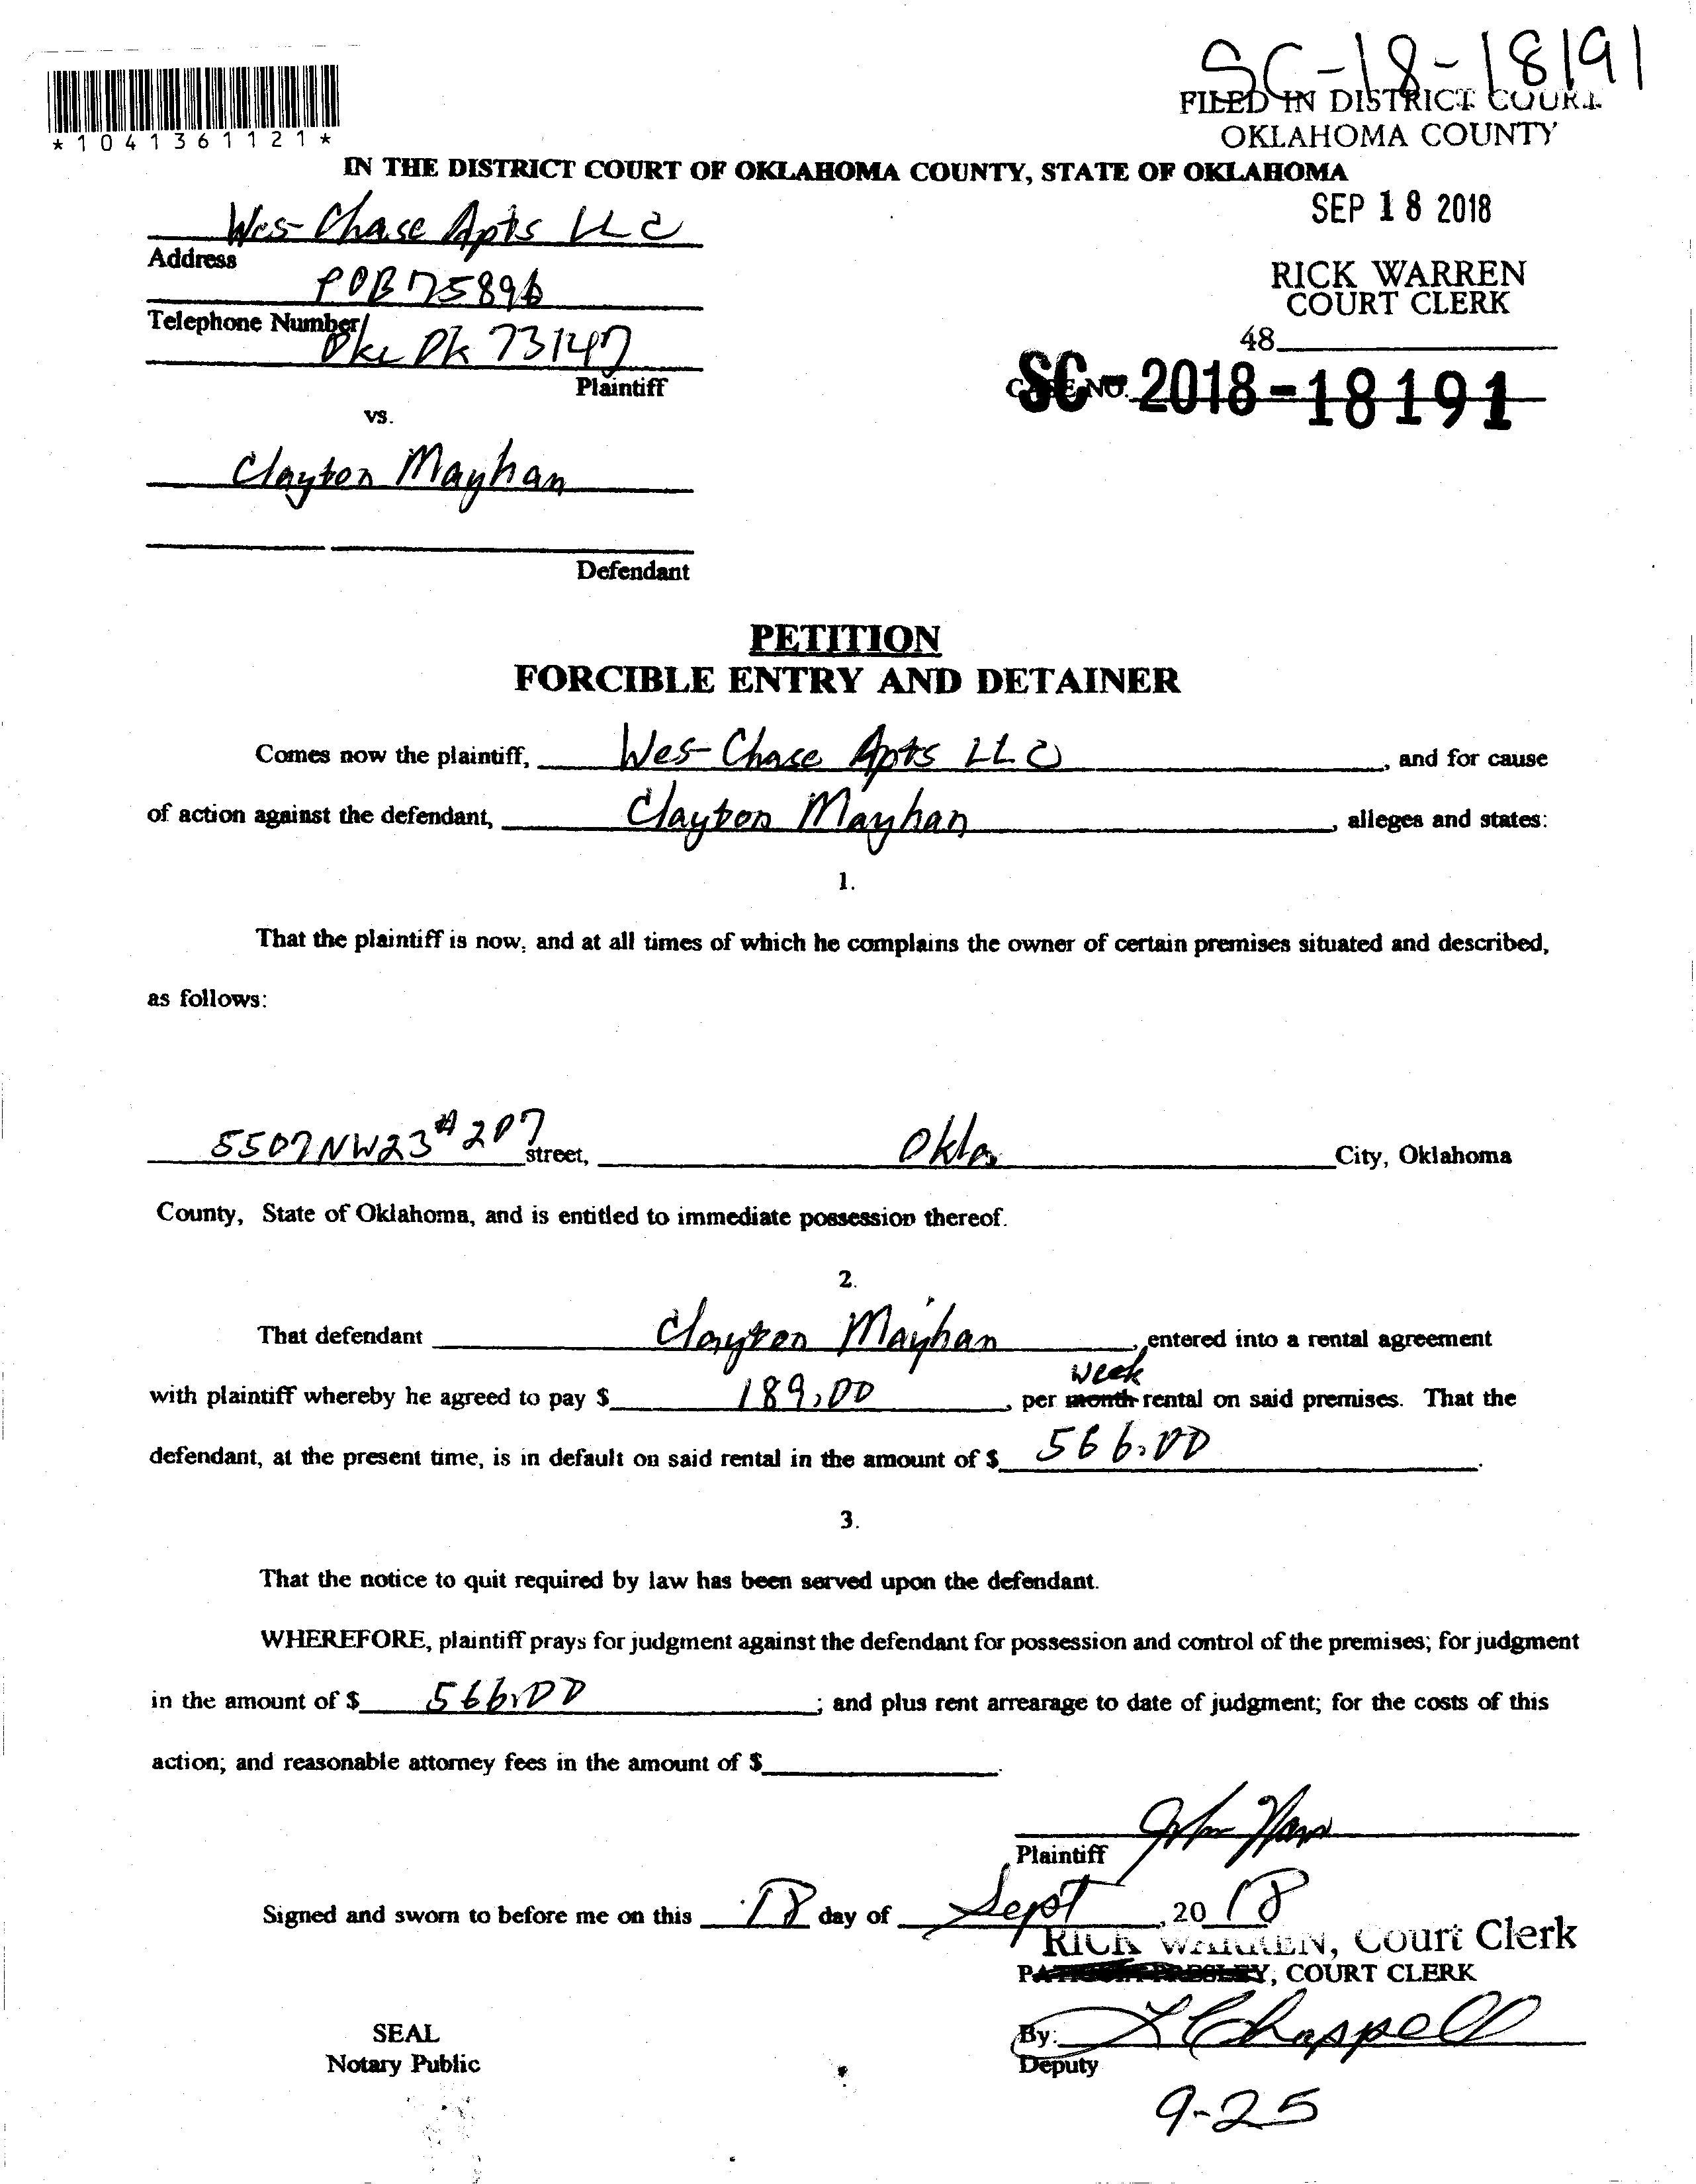 SC-18-18191
FILED IN DISTRICT COURT
OKLAHOMA COUNTY
*1041361121*
IN THE DISTRICT COURT OF OKLAHOMA COUNTY, STATE OF OKLAHOMA
SEP 18 2018
Wes-Chase Apts LLC
Address
POB 75896
RICK WARREN
COURT CLERK
Telephone Number/
Okc Ok 73147
48
Plaintiff
CASE NO. SC-2018-18191
vs.
Clayton Mayhan
Defendant
PETITION
FORCIBLE ENTRY AND DETAINER
Comes now the plaintiff, Wes-Chase Apts LLC, and for cause
of action against the defendant, Clayton Mayhan, alleges and states:
1.
That the plaintiff is now, and at all times of which he complains the owner of certain premises situated and described,
as follows:
5507 NW 23 # 207 street, Okla, City, Oklahoma
County, State of Oklahoma, and is entitled to immediate possession thereof.
2.
That defendant Clayton Mayhan, entered into a rental agreement
week
with plaintiff whereby he agreed to pay $ 189.00, per month rental on said premises. That the
defendant, at the present time, is in default on said rental in the amount of $ 566.00.
3.
That the notice to quit required by law has been served upon the defendant.
WHEREFORE, plaintiff prays for judgment against the defendant for possession and control of the premises; for judgment
in the amount of $ 566.00; and plus rent arrearage to date of judgment; for the costs of this
action; and reasonable attorney fees in the amount of $ .
Plaintiff
Signed and sworn to before me on this 18 day of Sept, 20 18
RICK WARREN, Court Clerk
COURT CLERK
SEAL
By: L Chappell
Notary Public
Deputy
9-25